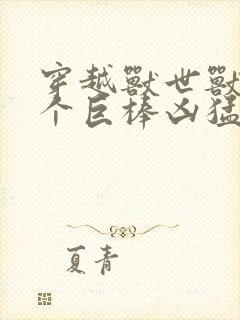 穿越獸世獸
个巨棒凶猛
夏青